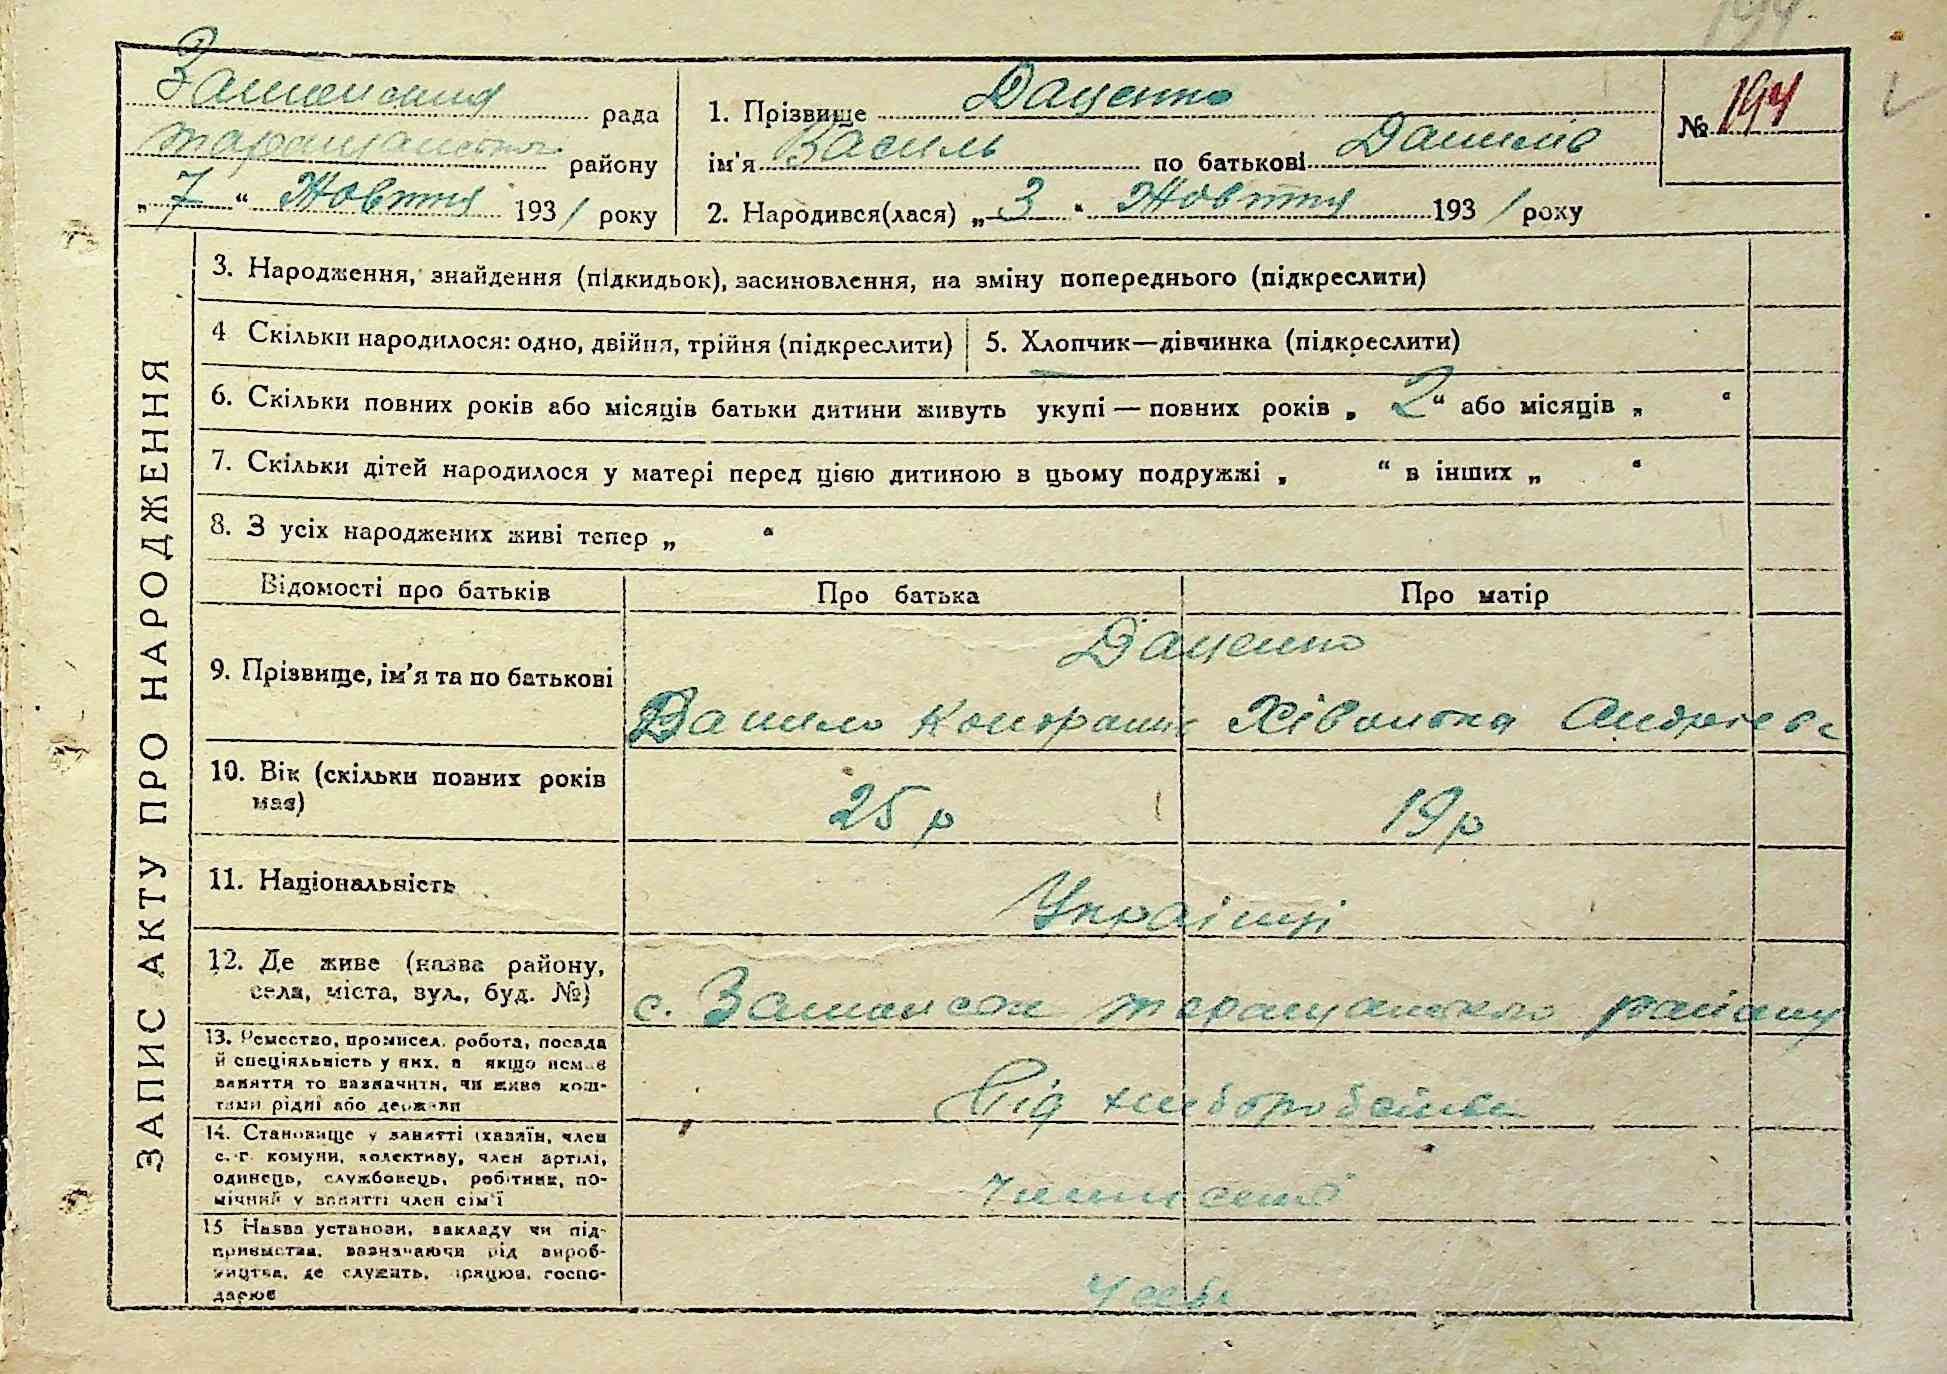 194
рада
району
„ 7 “ Жовтня 1931 року
1. Прізвище Даценко
ім'я Василь по батькові Данилів
2. Народився(лася) „ 3 “ Жовтня 1931 року
№ 194
ЗАПИС АКТУ ПРО НАРОДЖЕННЯ
3. Народження, знайдення (підкидьок), засиновлення, на зміну попереднього (підкреслити)
4 Скільки народилося: одно, двійня, трійня (підкреслити)
5. Хлопчик—дівчинка (підкреслити)
6. Скільки повних років або місяців батьки дитини живуть укупі — повних років „ 2 “ або місяців „ “
7. Скільки дітей народилося у матері перед цією дитиною в цьому подружжі „ “ в інших „ “
8. З усіх народжених живі тепер „ “
Відомості про батьків Про батька Про матір
9. Прізвище, ім'я та по батькові
Даценко
Данило
10. Вік (скільки повних років
має)
25 р 19 р
11. Національність
Українці
12. Де живе (назва району,
села, міста, вул., буд. №)
с. таращанского району
13. Ремество, промисел, робота, посада
й спеціяльність у них, а якщо немає
заняття то зазначити, чи живе кош-
тами рідні або держави
Від хліборобства
14. Становище у занятті (хазяїн, член
с.-г. комуни, колективу, член артілі,
одинець, службовець, робітник, по-
мічний у занятті член сім'ї
члени семї
15 Назва установи, закладу чи під-
приємства, зазначаючи рід вироб-
ництва, де служить, працює, госпо-
дарює
У себе